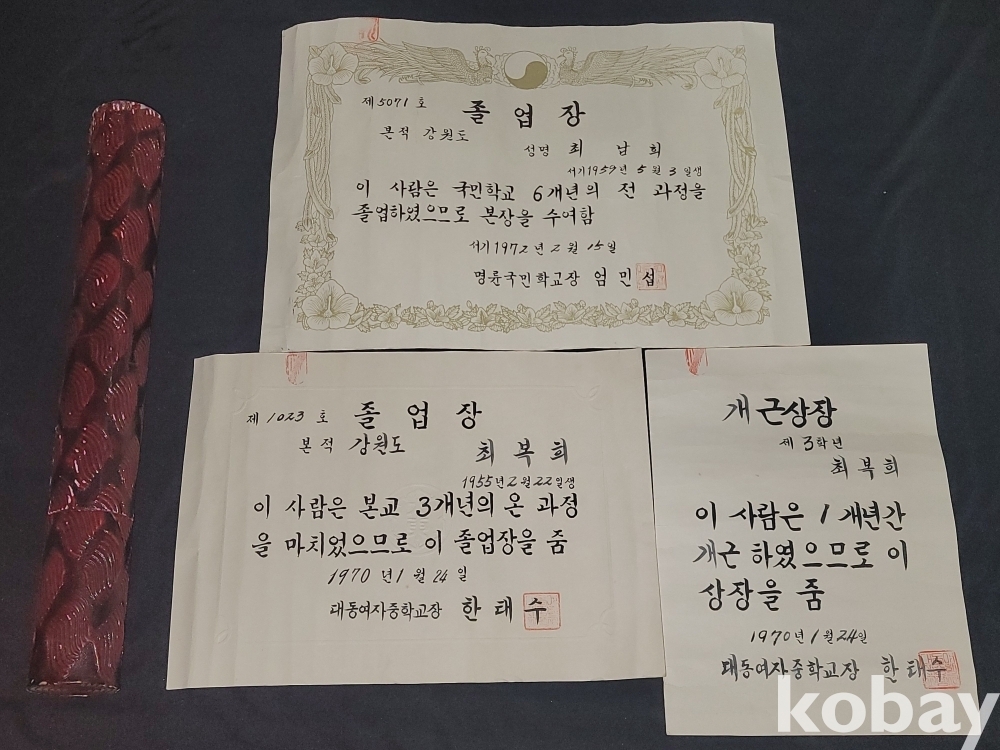 제5071호
졸업장
본적 강원도
성명 최남희
서기1959년 5월 3일생
이 사람은 국민학교 6개년의 전 과정을
졸업하였으므로 본장을 수여함
서기1972년 2월 15일
명륜국민학교장 엄민섭
제1023호 졸업장
본적 강원도 최복희
1955년2월22일생
이 사람은 본교 3개년의 온 과정
을 마치었으므로 이 졸업장을 줌
1970년 1월 24일
대동여자중학교장 한태수
개근상장
제3학년
최복희
이 사람은 1개년간
개근 하였으므로 이
상장을 줌
1970년 1월 24일
대동여자중학교장 한태수
kobay